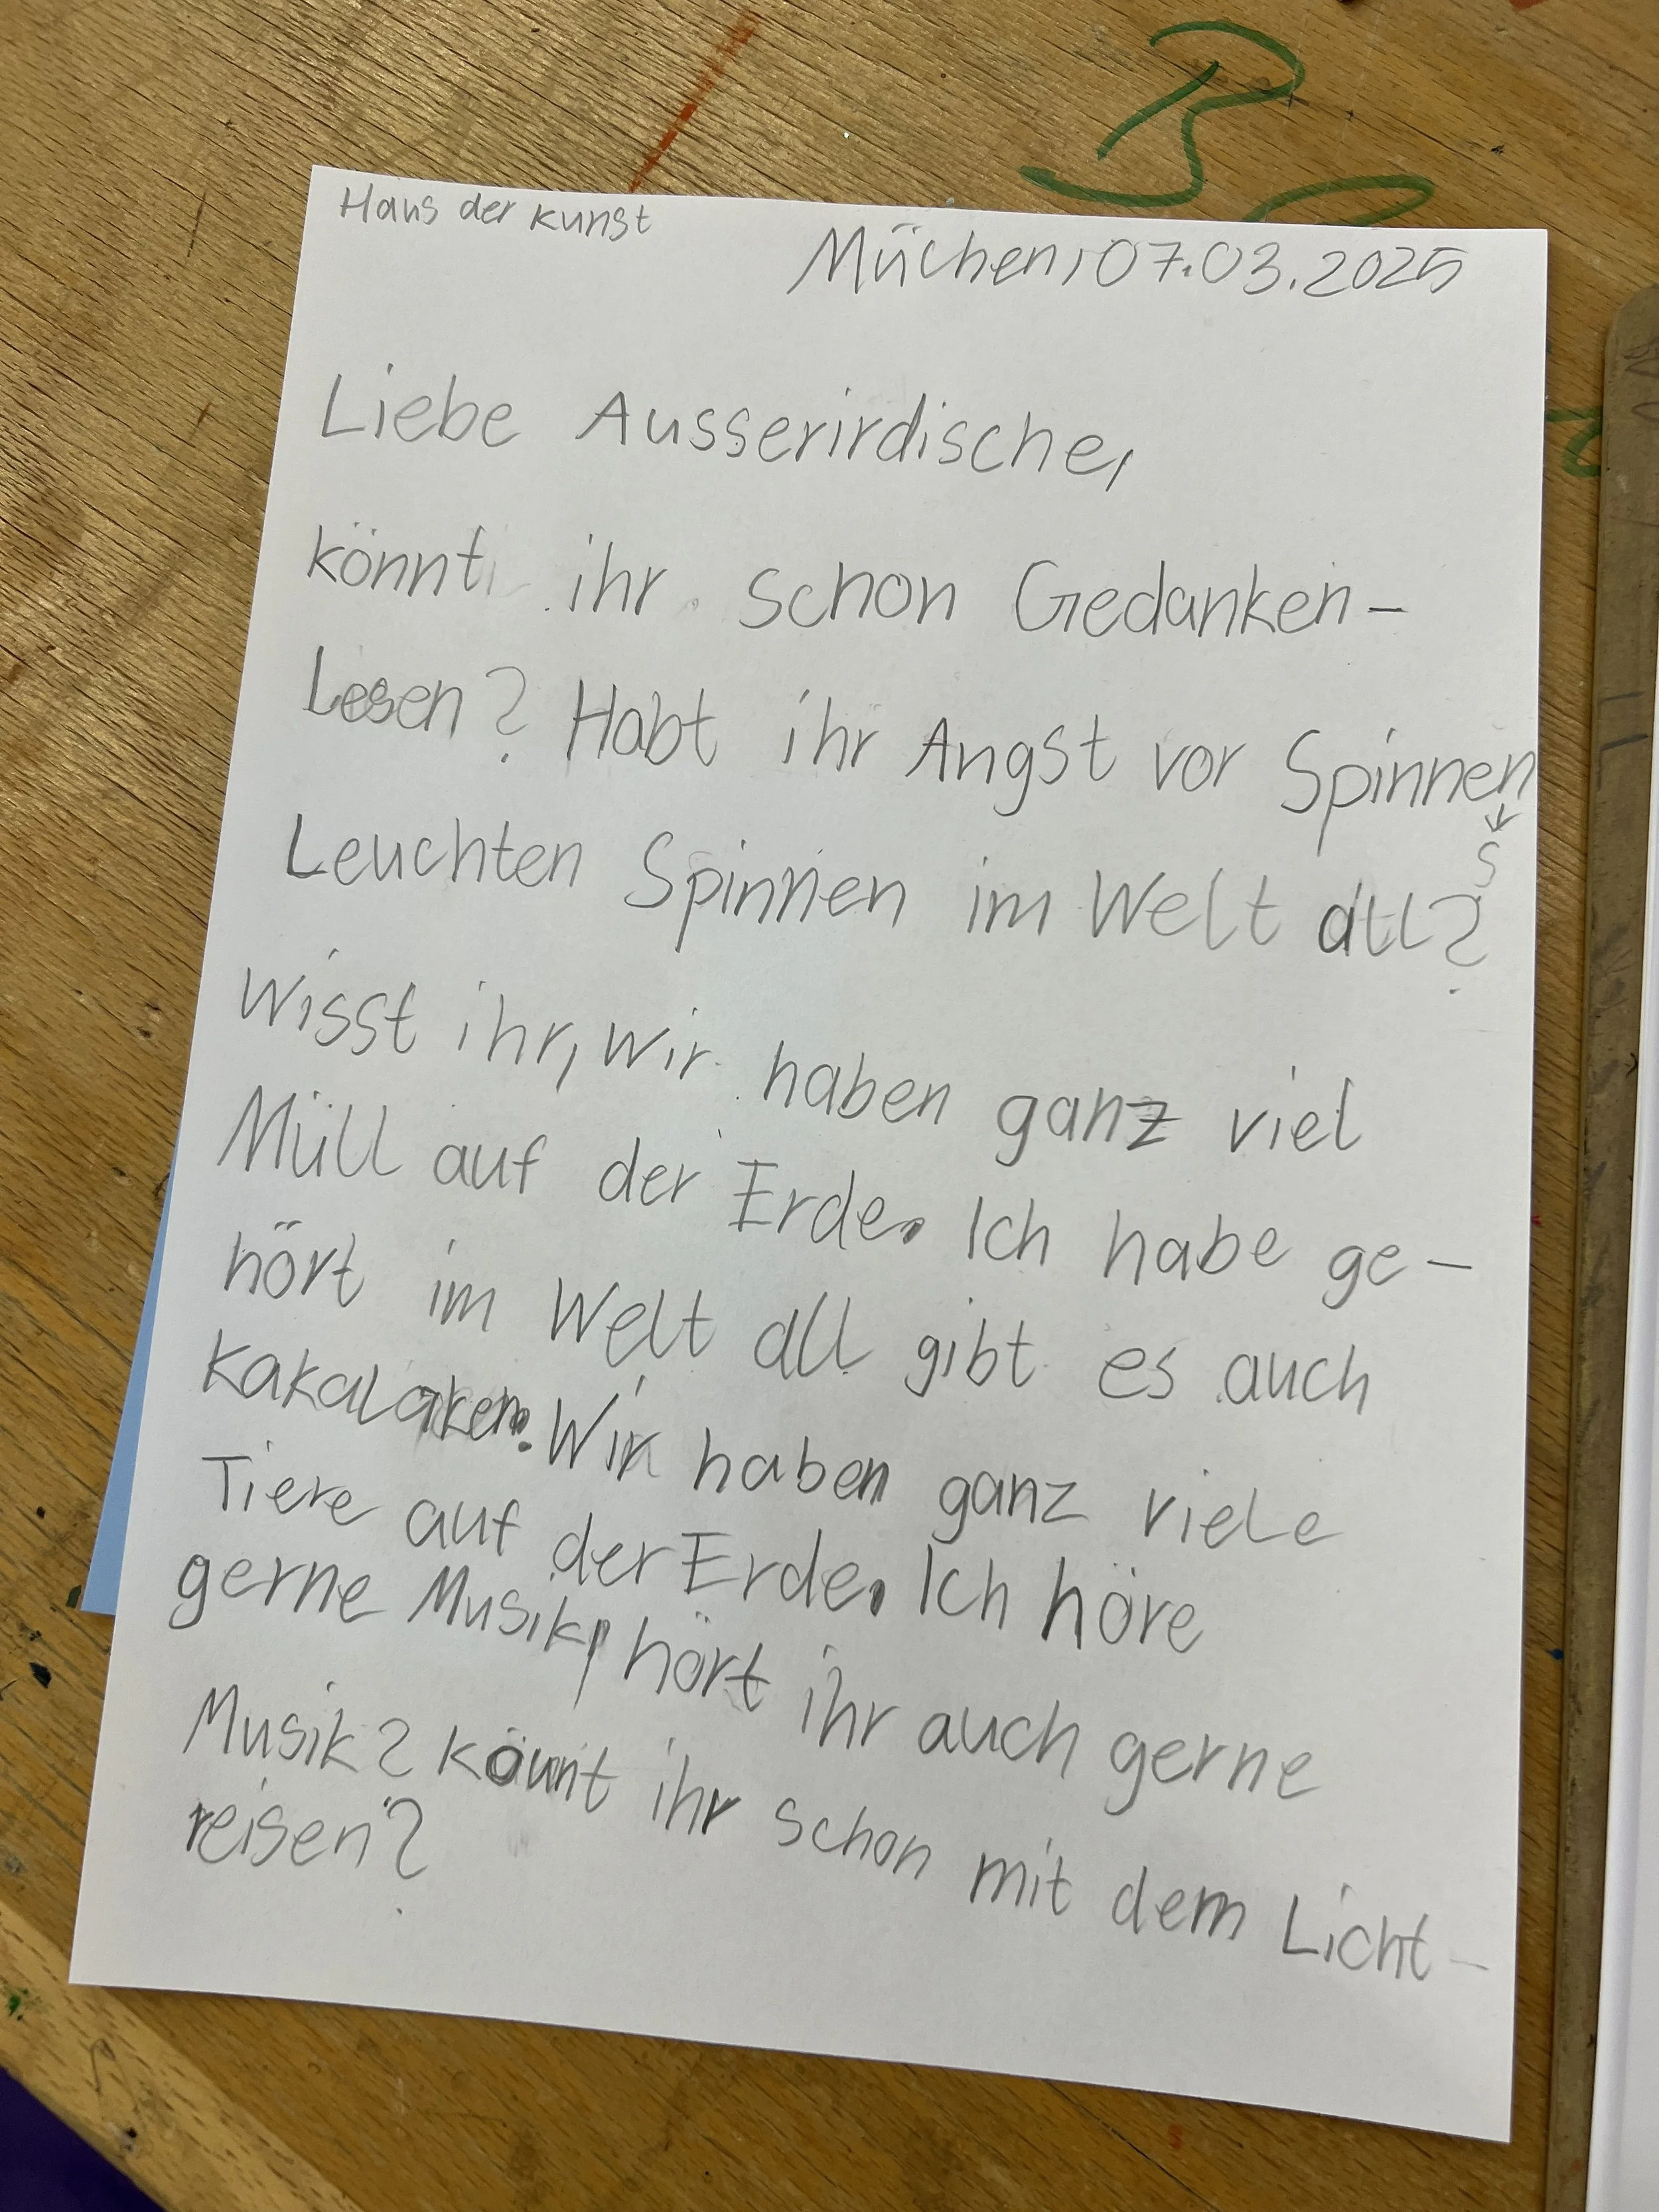 Haus der Kunst
Müchen, 07.03.2025
Liebe Ausserirdische,
könnt ihr schon Gedanken-
Lesen? Habt ihr Angst vor Spinnen
↓
?
Leuchten Spinnen im Welt all?
Wisst ihr, wir haben ganz viel
Müll auf der Erde. Ich habe ge-
hört im Welt all gibt es auch
Kakalaken. Wir haben ganz viele
Tiere auf der Erde. Ich höre
gerne Musik, hört ihr auch gerne
Musik? Könnt ihr schon mit dem Licht-
reisen?